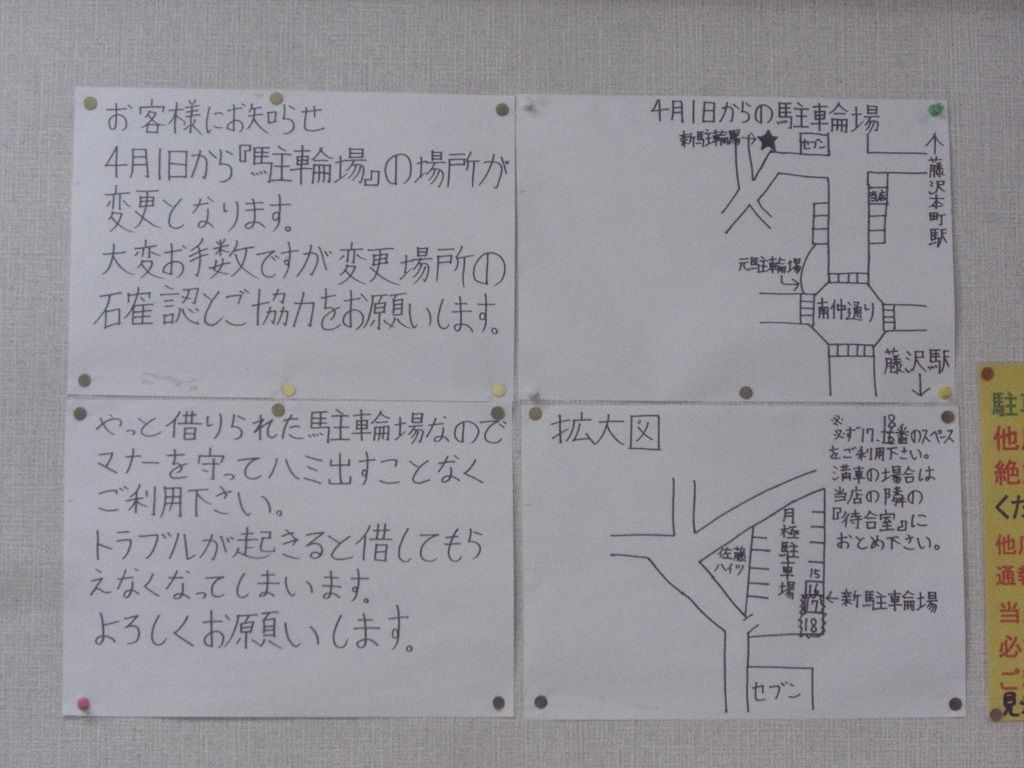 お客様にお知らせ
4月1日から『駐輪場』の場所が
変更となります。
大変お手数ですが変更場所の
確認とご協力をお願いします。
4月1日からの駐車輪場
新駐車輪場→★
セブン
当店
↑藤沢本町駅
元駐車輪場
南仲通り
藤沢駅
↓
やっと借りられた駐輪場なので
マナーを守ってハミ出すことなく
ご利用下さい。
トラブルが起きると借してもら
えなくなってしまいます。
よろしくお願いします。
拡大図
※
必ず17、18番のスペース
をご利用下さい。
満車の場合は
当店の隣の
『待合室』に
おとめ下さい。
月極駐車場
佐藤
ハイツ
15
16
17
18
←新駐車輪場
セブン
駐
他
絶
くだ
他
通報
当
必
ご
見